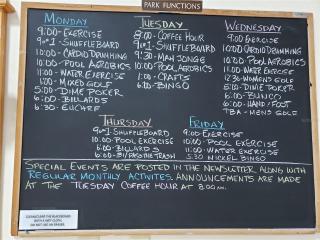 PARK FUNCTIONS
MONDAY
9:00-EXERCISE
9 or 1-SHUFFLEBOARD
10:00-CARDIO DRUMMING
10:00-POOL AEROBICS
11:00-WATER EXERCISE
1:00-MIXED GOLF
5:00-DIME POKER
6:00-BILLARDS
6:30-EUCHRE
TUESDAY
8:00-COFFEE HOUR
9 or 1-SHUFFLEBOARD
9:30-MAH JONGE
10:00 POOL AEROBICS
1:00-CRAFTS
6:00-BINGO
WEDNESDAY
9:00 EXERCISE
10:00 CARDIO DRUMMING
10:00 POOL AEROBICS
11:00 WATER EXERCISE
12:30-WOMENS GOLF
5:00-DIME POKER
6:00-BUNCO
6:00-HAND/FOOT
TBA-MENS GOLF
THURSDAY
9 or 1-SHUFFLEBOARD
10:00-POOL EXERCISE
6:00-BILLARDS
6:00-BITPASTHE TRASH
FRIDAY
9:00-EXERCISE
10:00-POOL EXERCISE
11:00-WATER EXERCISE
5:30 NICKEL BINGO
SPECIAL EVENTS ARE POSTED IN THE NEWSLETTER ALONG WITH
REGULAR MONTHLY ACTIVITES. ANNOUNCEMENTS ARE MADE
AT THE TUESDAY COFFEE HOUR AT 8:00 AM.
DO NOT USE AN ERASER